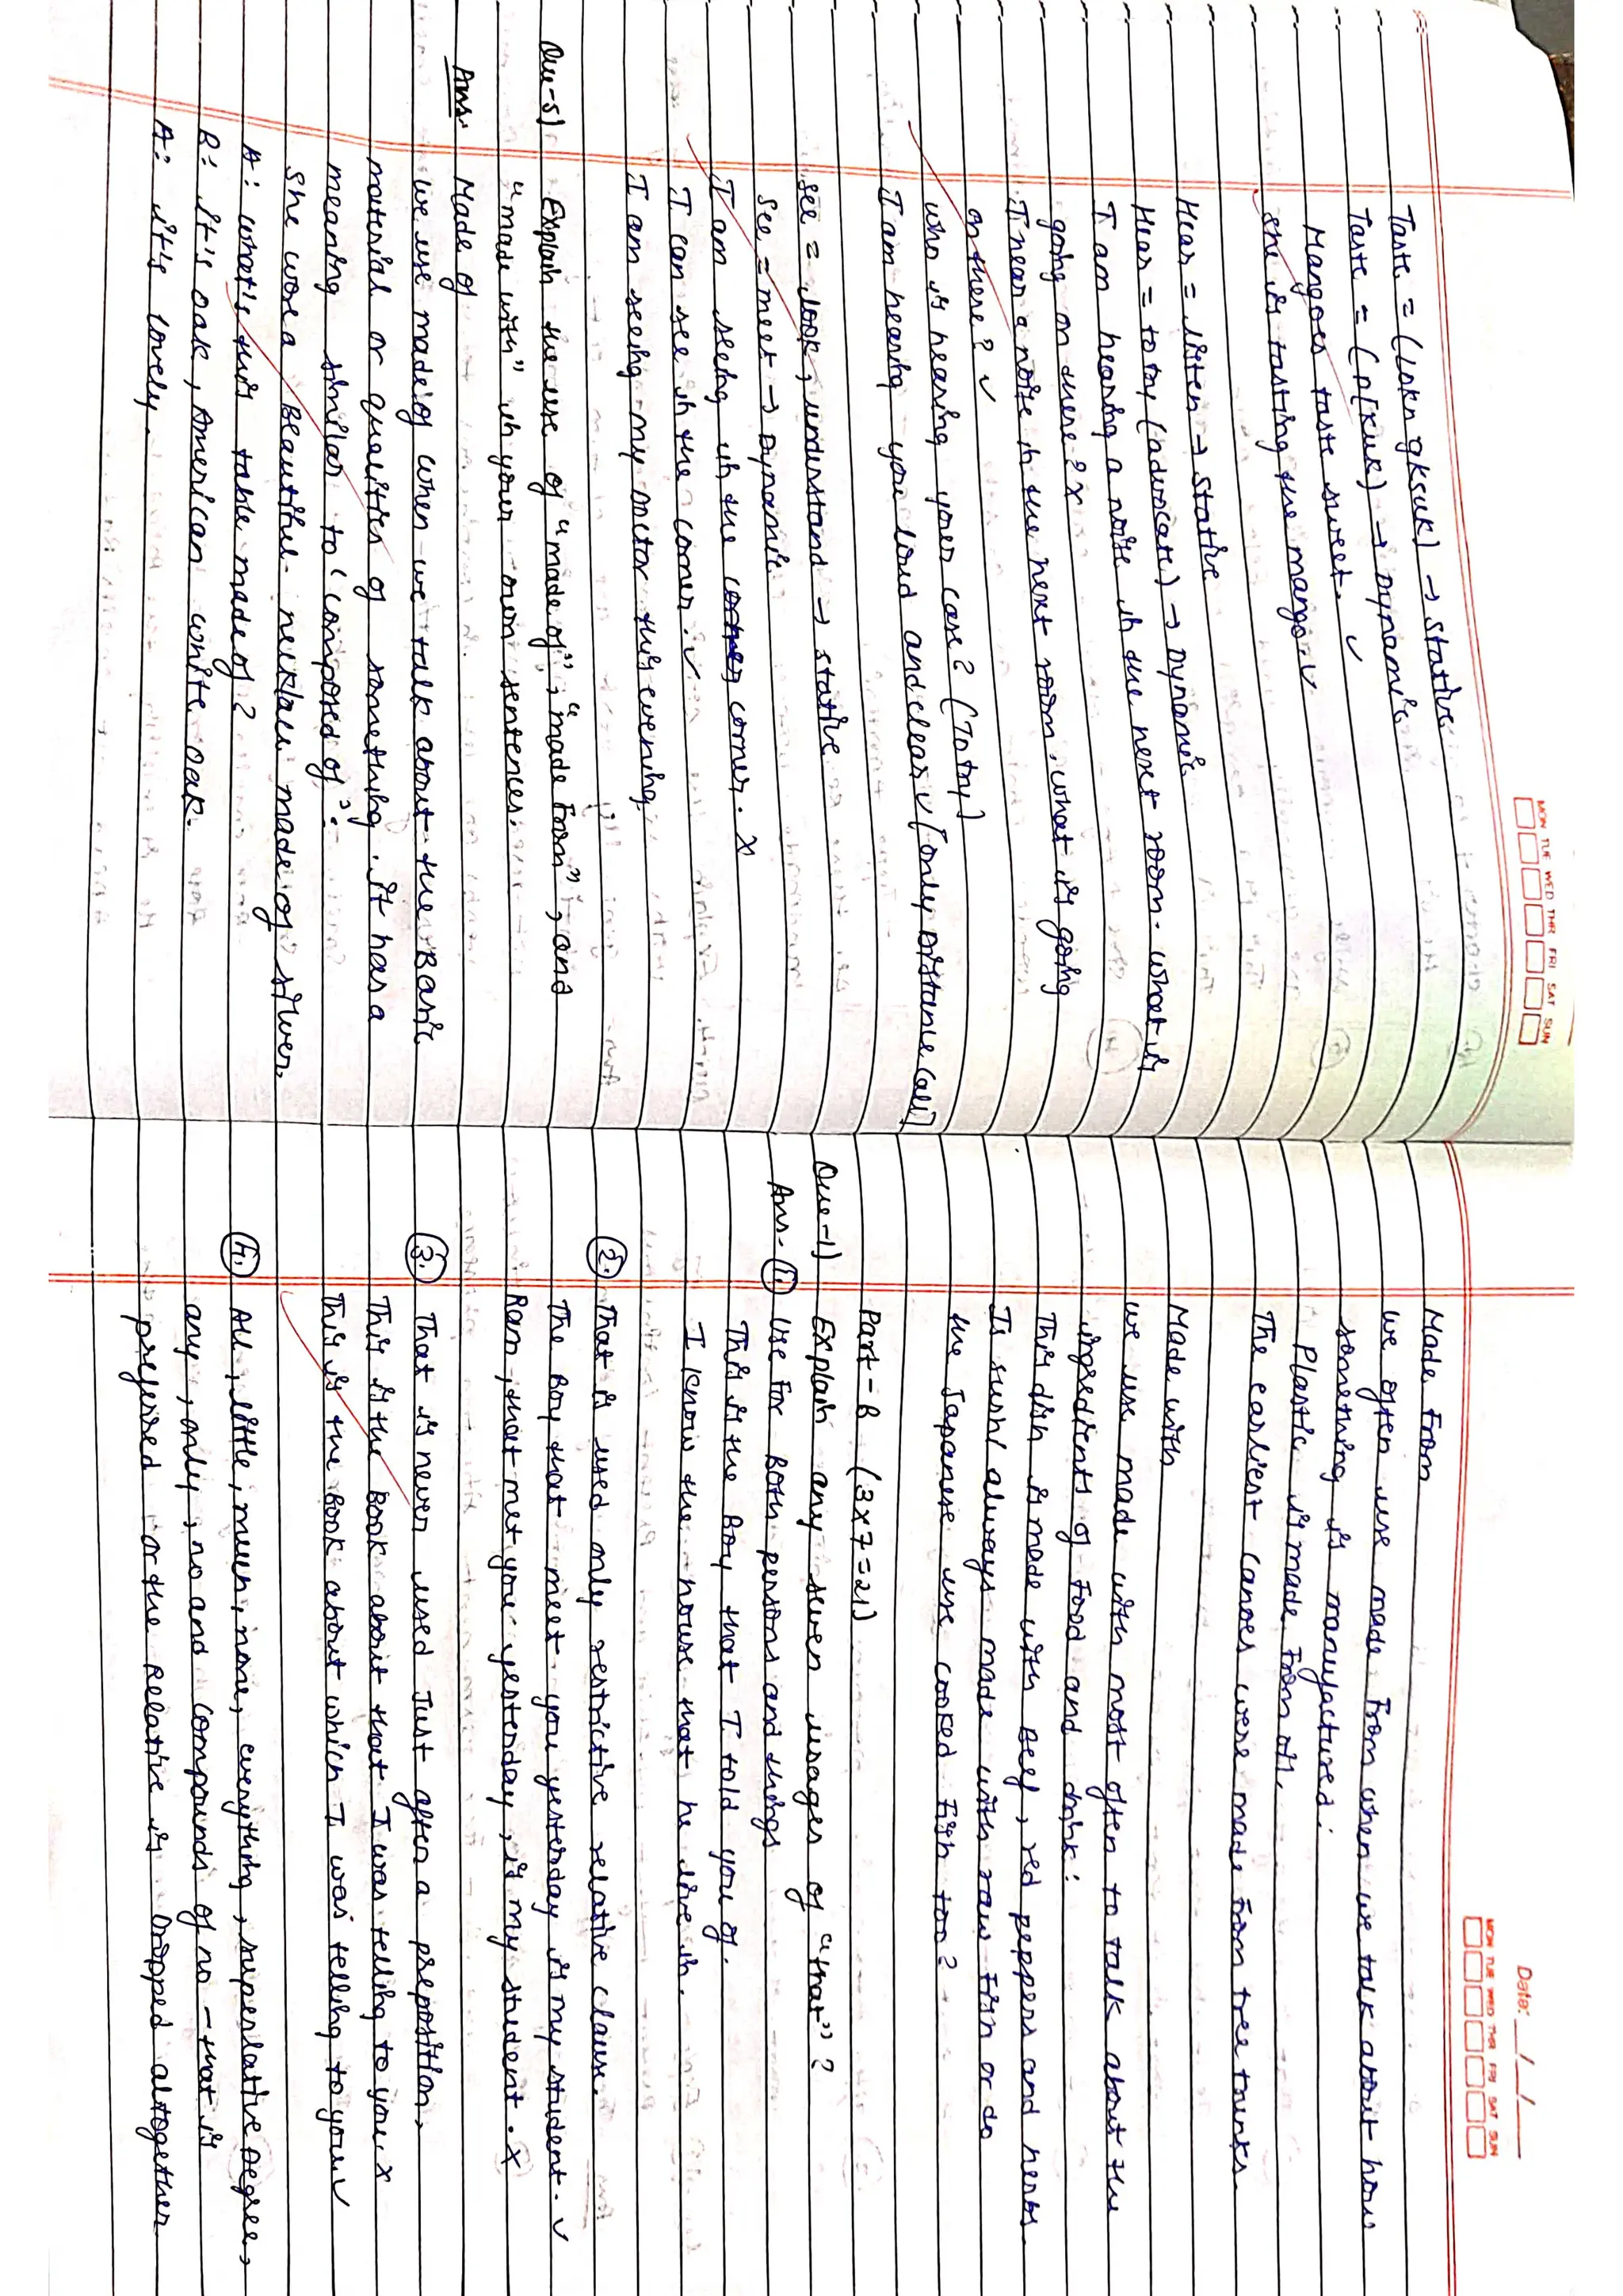 MON TUE WED THR FRI SAT SUN
Taste = (Lokn gksuk) → Stative
Taste = (p[kuk) → Dynamic
Mangoes taste sweet. ✓
She is tasting the mango ✓
Hear = listen → Stative
Hear = to try (advocate) → Dynamic
I am hearing a noise in the next room. what is
going on there? x
I hear a noise in the next room, what is going
on there? ✓
who is hearing your case? (To try)
I am hearing you loud and clear ✓ [only Distance Call]
see = look, understand → stative
See = meet → Dynamic
I am seeing in the corner. x
I can see in the corner. ✓
I am seeing my doctor this evening.
Que-5) Explain the use of "made of", "made from", and
"made with" in your own sentences.
Ans. Made of
we use made of when we talk about the Basic
material or qualities of something. It has a
meaning similar to 'composed of':
She wore a Beautiful necklace made of silver.
A: what's this table made of?
B: It's oak, American white oak.
A: it's lovely.
Date: __/__/__
MON TUE WED THR FRI SAT SUN
Made from
we often use made from when we talk about how
something is manufactured:
Plastic is made from oil.
The earliest canoes were made from tree trunks.
Made with
we use made with most often to talk about the
ingredients of food and drink:
This dish is made with Beef, red peppers and herbs.
Is sushi always made with raw fish or do
the Japanese use cooked fish too?
Part-B (3x7=21)
Que-1) Explain any seven usages of "that"?
Ans- 1. Use for Both persons and things
This is the Boy that I told you of.
I know the house that he live in.
2. That is used only restrictive relative clause.
The Boy that meet you yesterday is my student. ✓
Ram, that met you yesterday, is my student. x
3. That is never used Just after a preposition.
This is the Book about that I was telling to you x
This is the Book about which I was telling to you ✓
4. All, little, much, none, everything, superlative Degree,
any, only, no and compounds of no – that is
preferred or the relative is Dropped altogether